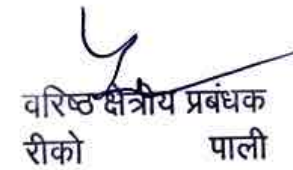 वरिष्ठ क्षेत्रीय प्रबंधक
रीको पाली